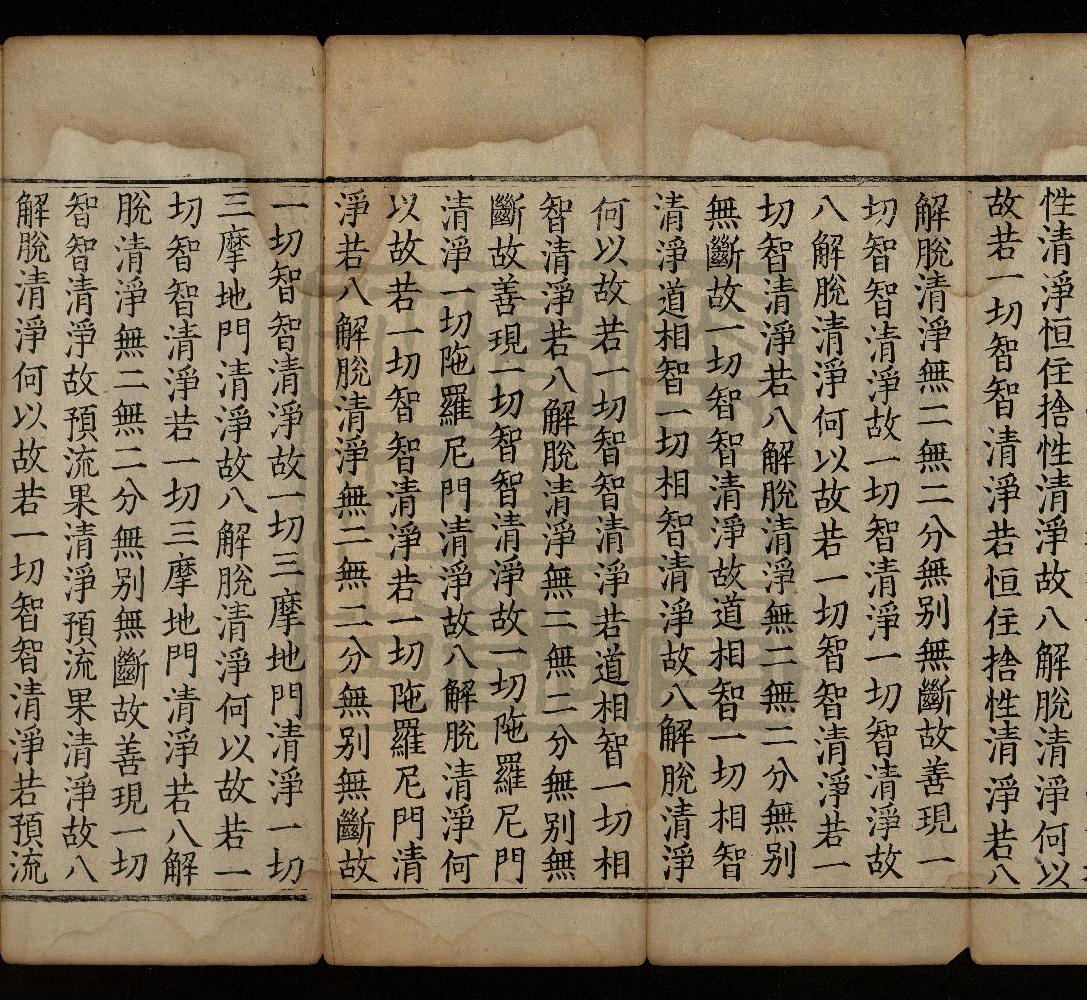 性清淨恒住捨性清淨故八解脫清淨何以
故若一切智智清淨若恒住捨性清淨若八
解脫清淨無二無二分無別無斷故善現一
切智智清淨故一切智清淨一切智清淨故
八解脫清淨何以故若一切智智清淨若一
切智清淨若八解脫清淨無二無二分無別
無斷故一切智智清淨故道相智一切相智
清淨道相智一切相智清淨故八解脫清淨
何以故若一切智智清淨若道相智一切相
智清淨若八解脫清淨無二無二分無別無
斷故善現一切智智清淨故一切陁羅尼門
清淨一切陁羅尼門清淨故八解脫清淨何
以故若一切智智清淨若一切陁羅尼門清
淨若八解脫清淨無二無二分無別無斷故
一切智智清淨故一切三摩地門清淨一切
三摩地門清淨故八解脫清淨何以故若一
切智智清淨若一切三摩地門清淨若八解
脫清淨無二無二分無別無斷故善現一切
智智清淨故預流果清淨預流果清淨故八
解脫清淨何以故若一切智智清淨若預流